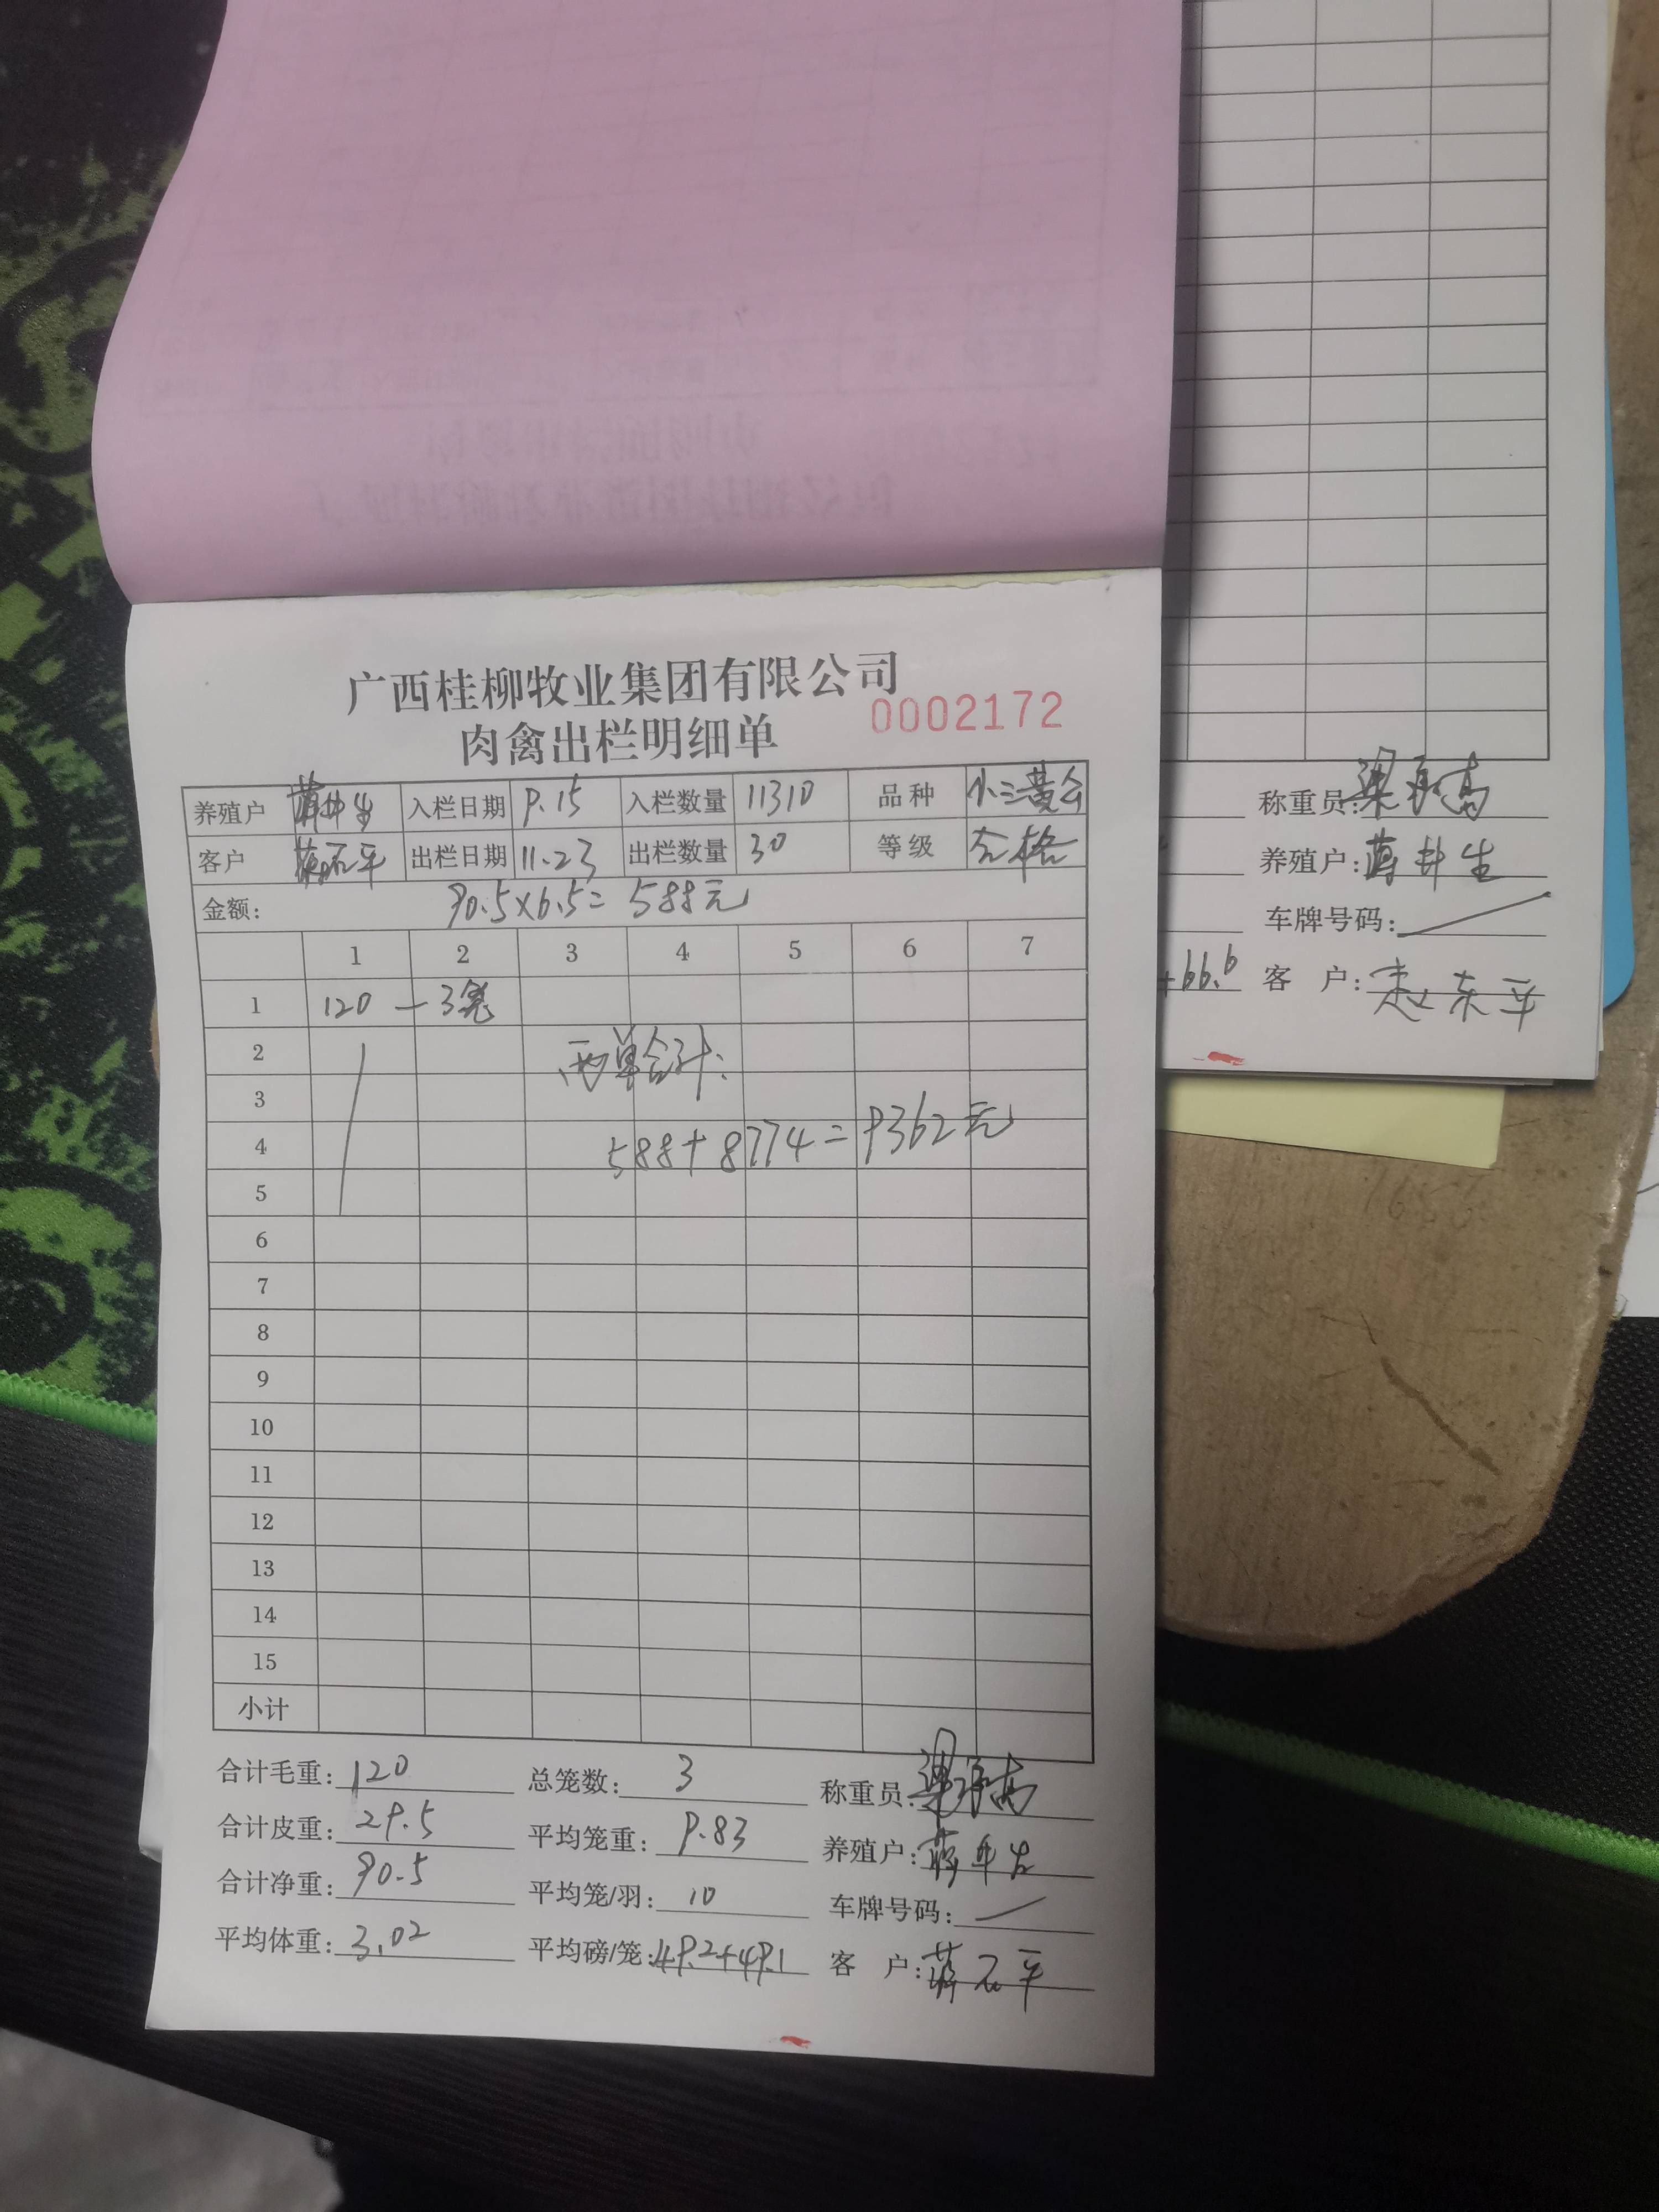 广西桂柳牧业集团有限公司
肉禽出栏明细单 0002172
养殖户 蒋井生 入栏日期 9.15 入栏数量 11310 品种 小三黄公
客户 蒋石平 出栏日期 11.23 出栏数量 30 等级 合格
金额: 90.5×6.5=588元
1 2 3 4 5 6 7
1 120 — 3笼
2 两单合计:
3
4 588+8774=9362元
5
6
7
8
9
10
11
12
13
14
15
小计
合计毛重: 120 总笼数: 3 称重员:
合计皮重: 29.5 平均笼重: 9.83 养殖户: 蒋井生
合计净重: 90.5 平均笼/羽: 10 车牌号码:
平均体重: 3.02 平均磅/笼: 49.2+49.1 客 户: 蒋石平
称重员:
养殖户: 蒋井生
车牌号码:
+66.6 客 户: 赵东平